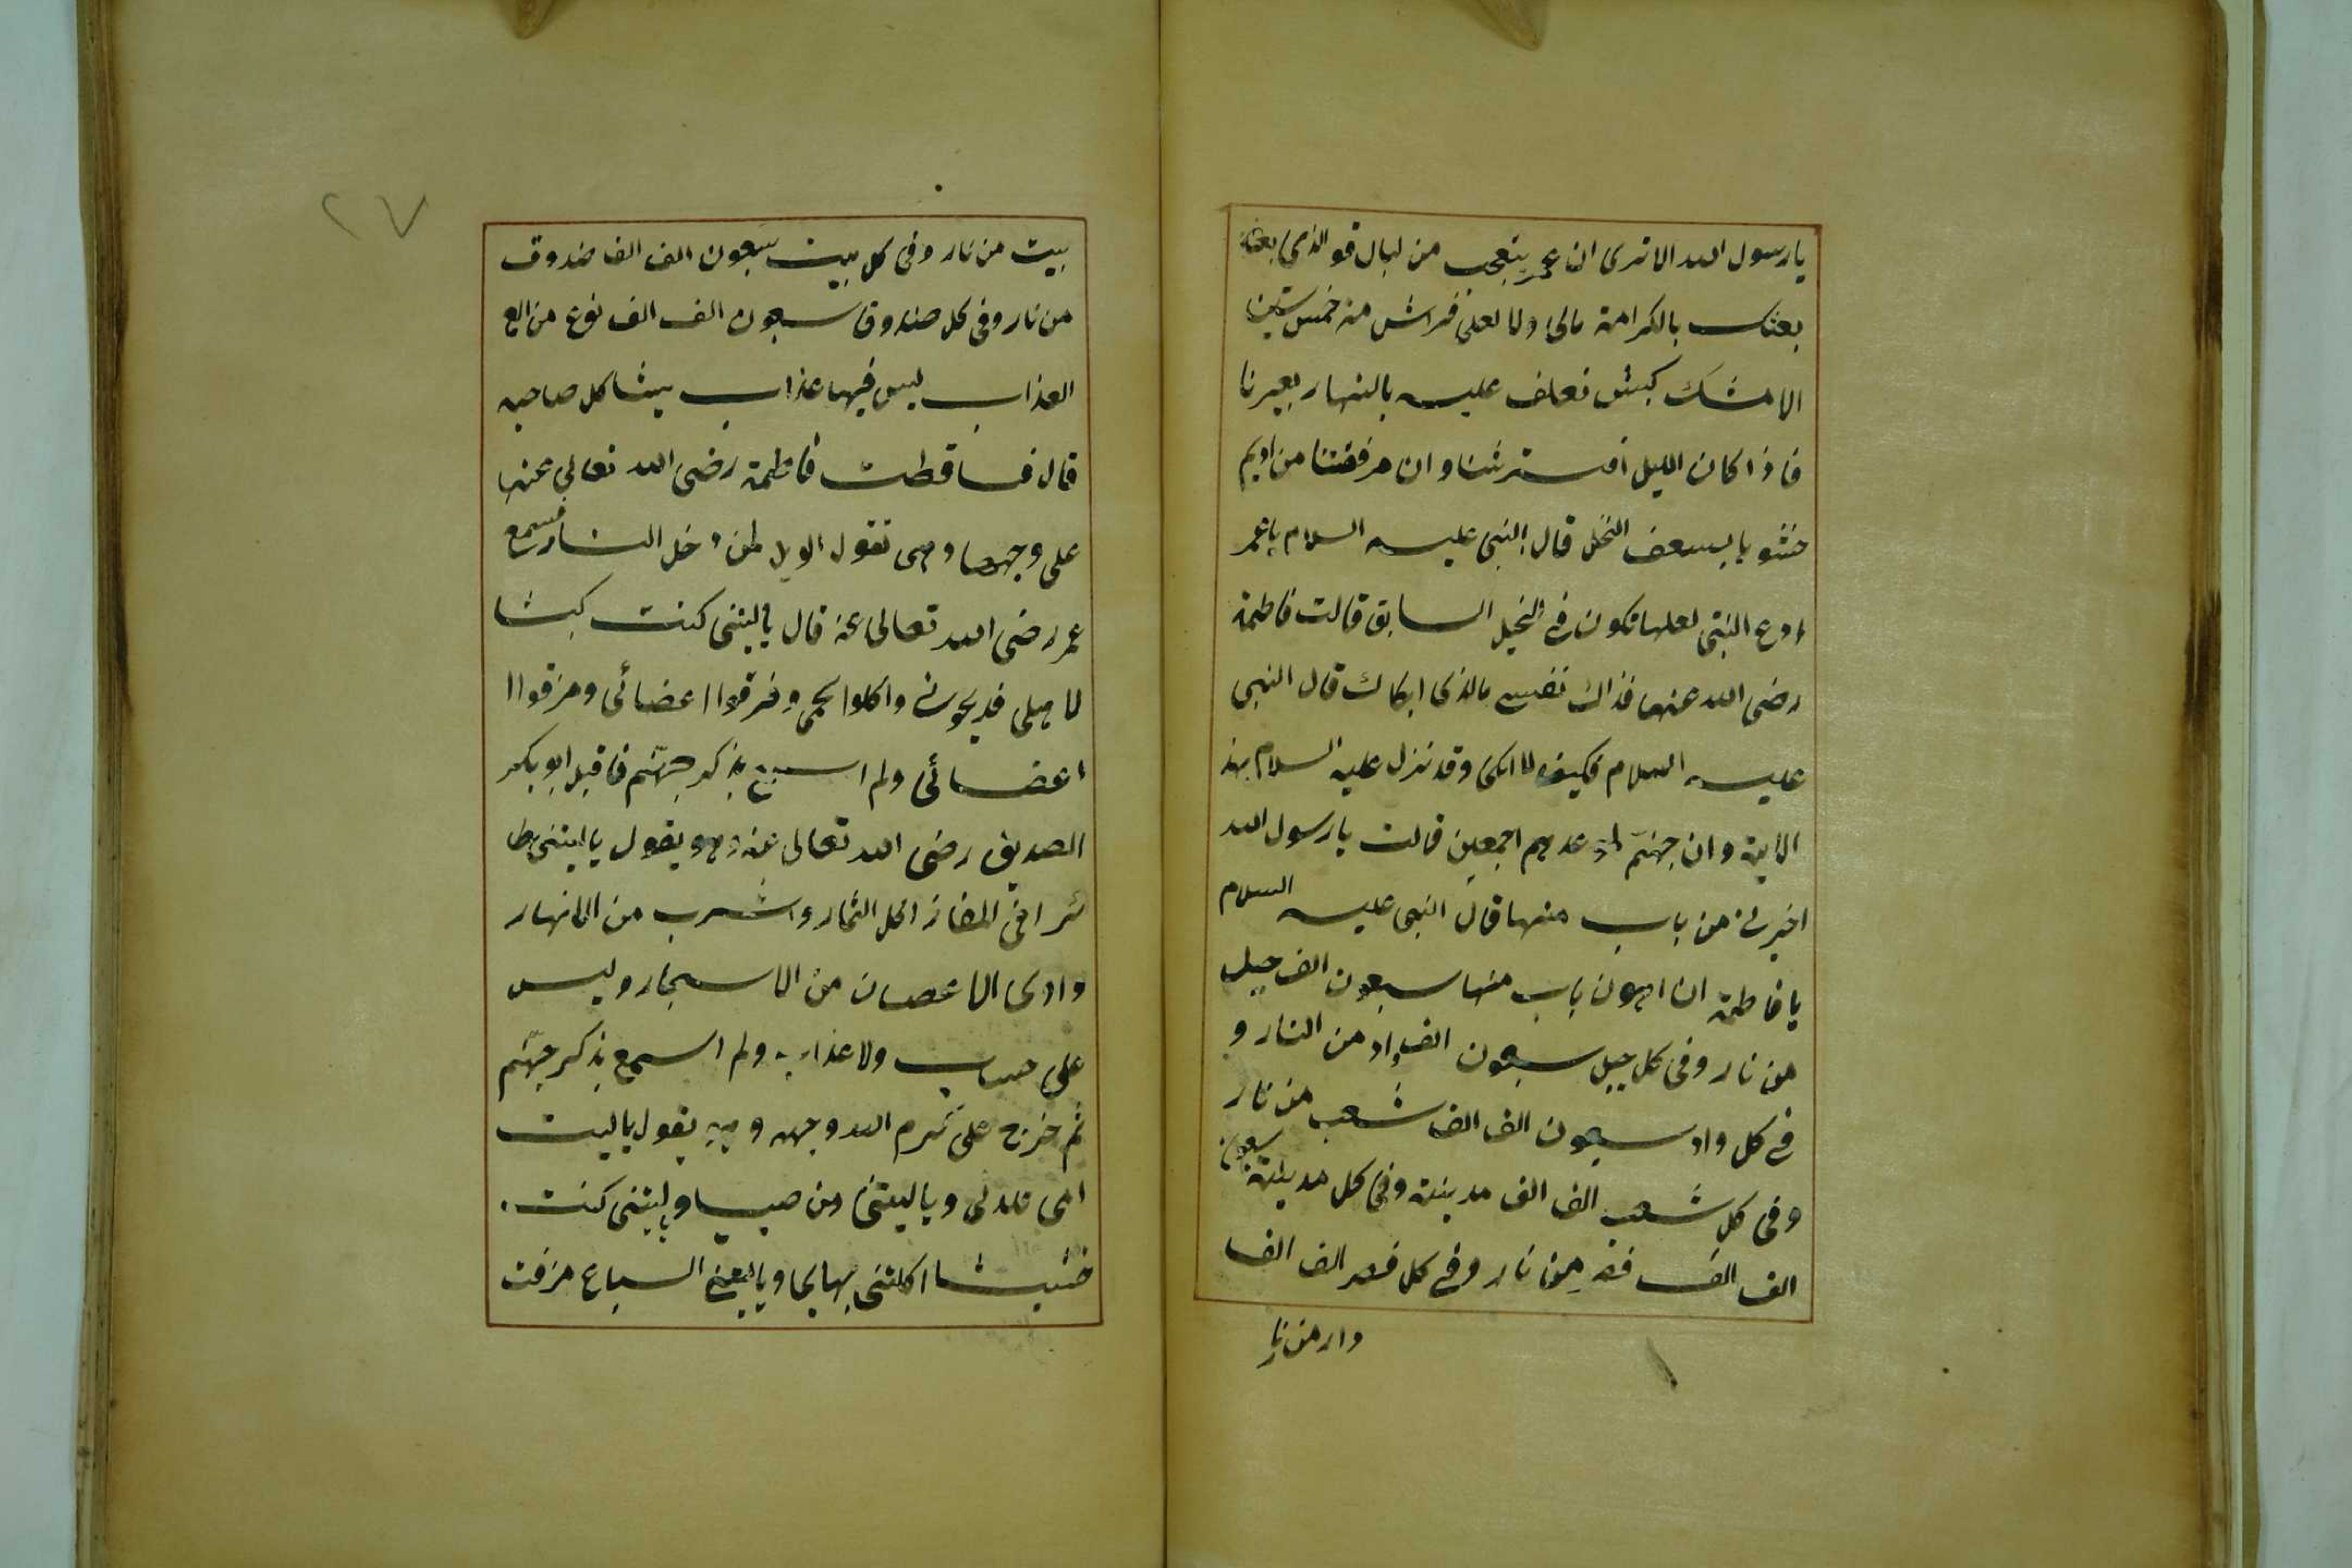 يا رسول الله الا ترى ان عمر يتعجب من لباس فو الذى بعثك
بعثك بالكرامة مالى ولا لعلى فراش منه خمس سنين
الا مشك كبش نعلف عليه بالنهار بعيرنا
فاذا كان الليل افترشنا وان مرفقتنا من اديم
حشو يا بسعف النخل قال النبى عليه السلام يا عمر
ادع البنتى لعلها تكون فى الخيل السابق قالت فاطمة
رضى الله عنها فذاك نفسى مالذى ابكاك قال النبى
عليه السلام وكيف لا ابكى وقد نزل عليه السلام بهذه
الاية وان جهنم لموعدهم اجمعين قالت يا رسول الله
اخبرنى من باب منها قال النبى عليه السلام
يا فاطمة ان اهون باب منها سبعون الف جبل
من نار وفى كل جبل سبعون الف واد من النار و
فى كل واد سبعون الف الف شعب من نار
وفى كل شعب الف الف مدينة وفى كل مدينة سبعون
الف الف قصر من نار وفى كل قصر الف الف
دار من نار
٢٧
بيت من نار وفى كل بيت سبعون الف الف صندوق
من نار وفى كل صندوق سبعون الف الف نوع من الع
العذاب ليس فيها عذاب يشاكل صاحبه
قال فساقطت فاطمة رضى الله تعالى عنها
على وجهها وهى تقول الويل لمن دخل النار فسمع
عمر رضى الله تعالى عنه قال يا ليتنى كنت كبشا
لاهلى فذبحونى واكلوا لحمى وفرقوا اعضائى ومزقوا ا
اعضائى ولم اسمع بذكر جهنم فاقبل ابو بكر
الصديق رضى الله تعالى عنه وهو يقول يا ليتنى طا
ئرا فى المفازة اكل الثمار واشرب من الانهار
واوى الاغصان من الاشجار وليس
على حساب ولا عذاب ولم اسمع بذكر جهنم
ثم خرج على كرم الله وجهه وهو يقول يا ليت
امى لم تلدنى ويا ليتنى من صبيا وليتنى كنت
خشيشا اكلتنى بهايما ويا ليتنى السباع مزقت